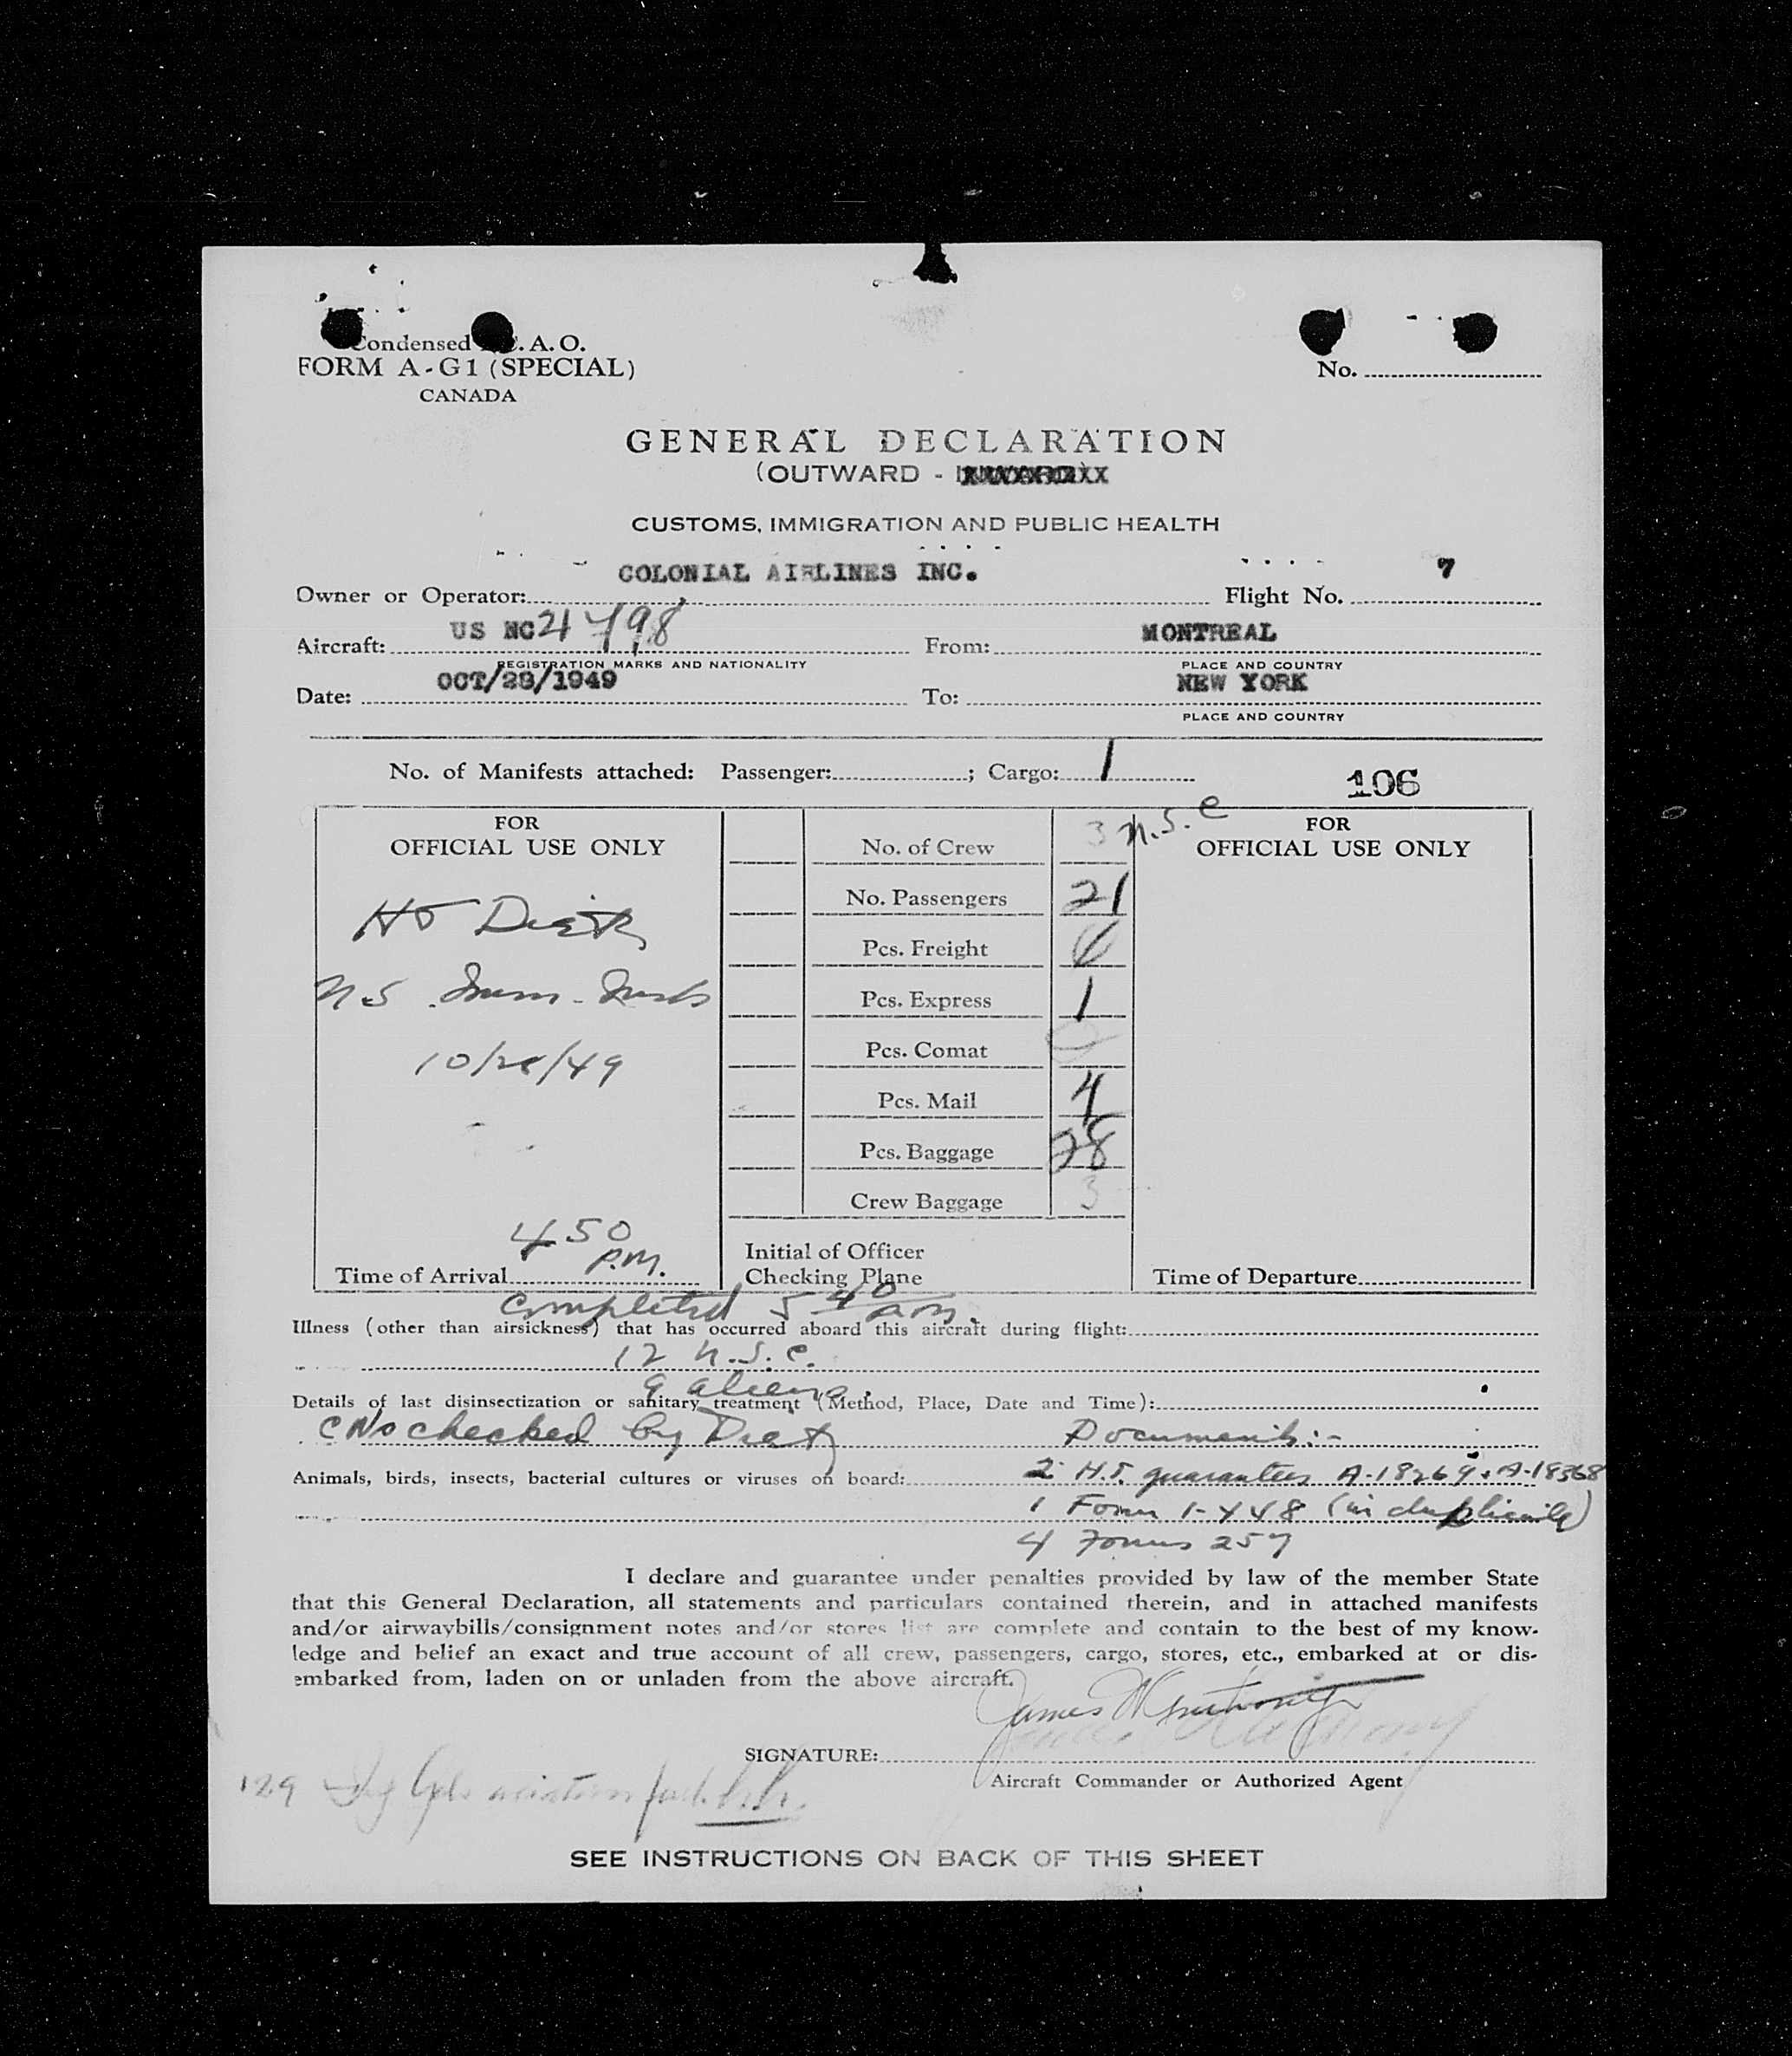 Condensed I.C.A.O.
FORM A-G1 (SPECIAL)
CANADA
No.
GENERAL DECLARATION
(OUTWARD -
CUSTOMS, IMMIGRATION AND PUBLIC HEALTH
Owner or Operator: COLONIAL AIRLINES INC. Flight No. 7
Aircraft: US NC21798 From: MONTREAL
REGISTRATION MARKS AND NATIONALITY PLACE AND COUNTRY
Date: OCT/28/1949 To: NEW YORK
PLACE AND COUNTRY
No. of Manifests attached: Passenger: ; Cargo: 1
106
FOR
OFFICIAL USE ONLY
HJ Dietz
10/28/49
450
P.M.
Time of Arrival
No. of Crew 3 n.s.c
No. Passengers 21
Pcs. Freight
Pcs. Express 1
Pcs. Comat
Pcs. Mail 4
Pcs. Baggage 28
Crew Baggage 3
Initial of Officer
Checking Plane
FOR
OFFICIAL USE ONLY
Time of Departure
Completed 5 40
Illness (other than airsickness) that has occurred aboard this aircraft during flight:
12 n.s.c.
9 aliens.
Details of last disinsectization or sanitary treatment (Method, Place, Date and Time):
checked by Dietz Documents:-
Animals, birds, insects, bacterial cultures or viruses on board: 2 guarantees A-18269 + A-18368
1 Form 1-448 (in duplicate)
4 Forms 257
I declare and guarantee under penalties provided by law of the member State
that this General Declaration, all statements and particulars contained therein, and in attached manifests
and/or airwaybills/consignment notes and/or stores list are complete and contain to the best of my know-
ledge and belief an exact and true account of all crew, passengers, cargo, stores, etc., embarked at or dis-
embarked from, laden on or unladen from the above aircraft.
James
SIGNATURE:
Aircraft Commander or Authorized Agent
129
SEE INSTRUCTIONS ON BACK OF THIS SHEET